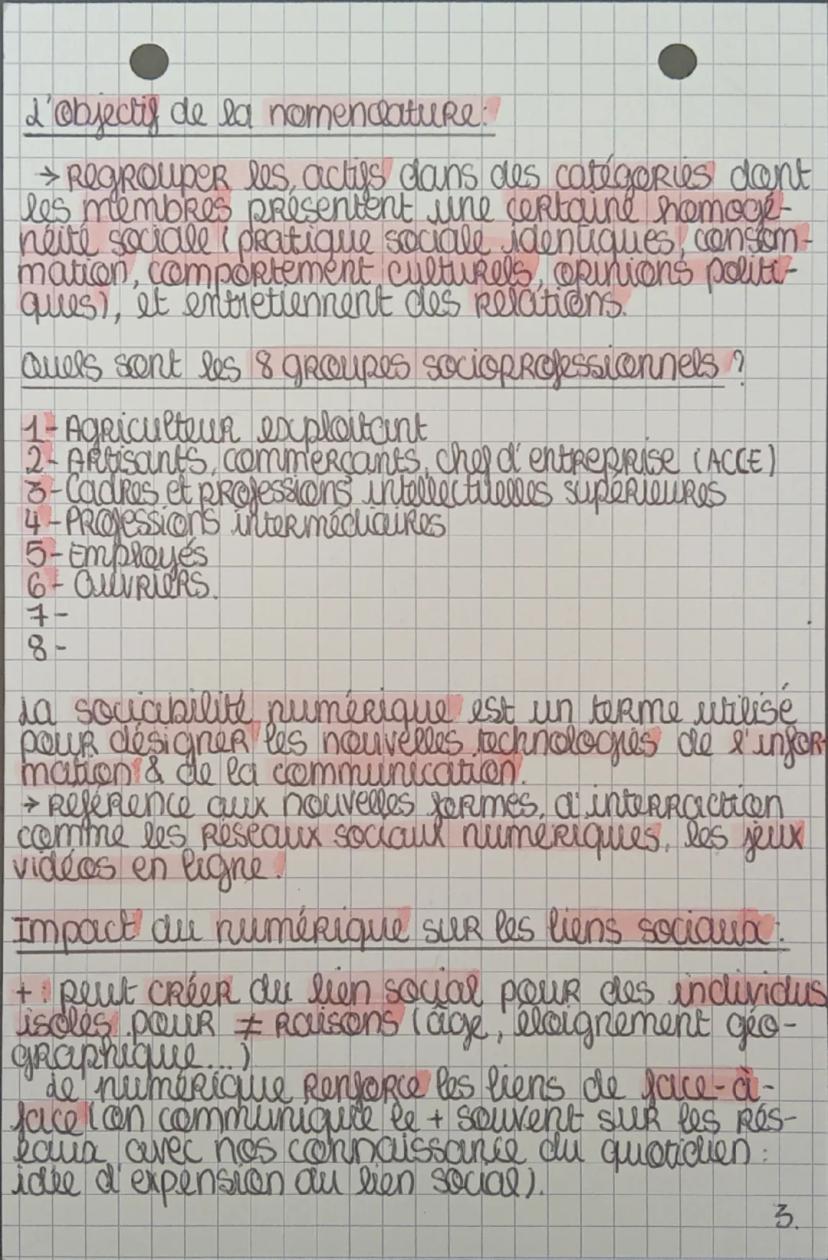 L'objectif de la nomenclature:
→ Regrouper les actifs dans des catégories dont
les membres présentent une certaine homogé-
néité sociale (pratique sociale identiques, consom-
mation, comportement culturels, opinions politi-
ques), et entretiennent des relations.
Quels sont les 8 groupes socioprofessionnels ?
1- Agriculteur exploitant
2- Artisants, commerçants, chef d'entreprise (ACCE)
3- Cadres et professions intellectuelles supérieures
4- Professions intermédiaires
5- Employés
6- Ouvriers.
7-
8-
La sociabilité numérique est un terme utilisé
pour désigner les nouvelles technologies de l'infor-
mation & de la communication.
→ Référence aux nouvelles formes d'interraction
comme les réseaux sociaux numériques, les jeux
vidéos en ligne.
Impact du numérique sur les liens sociaux:
+ : peut créer du lien social pour des individus
isolés pour ≠ raisons (âge, éloignement géo-
graphique...)
Le numérique renforce les liens de face-à-
face (on communique le + souvent sur les rés-
eaux avec nos connaissance du quotidien :
idée d'expension du lien social).
3.